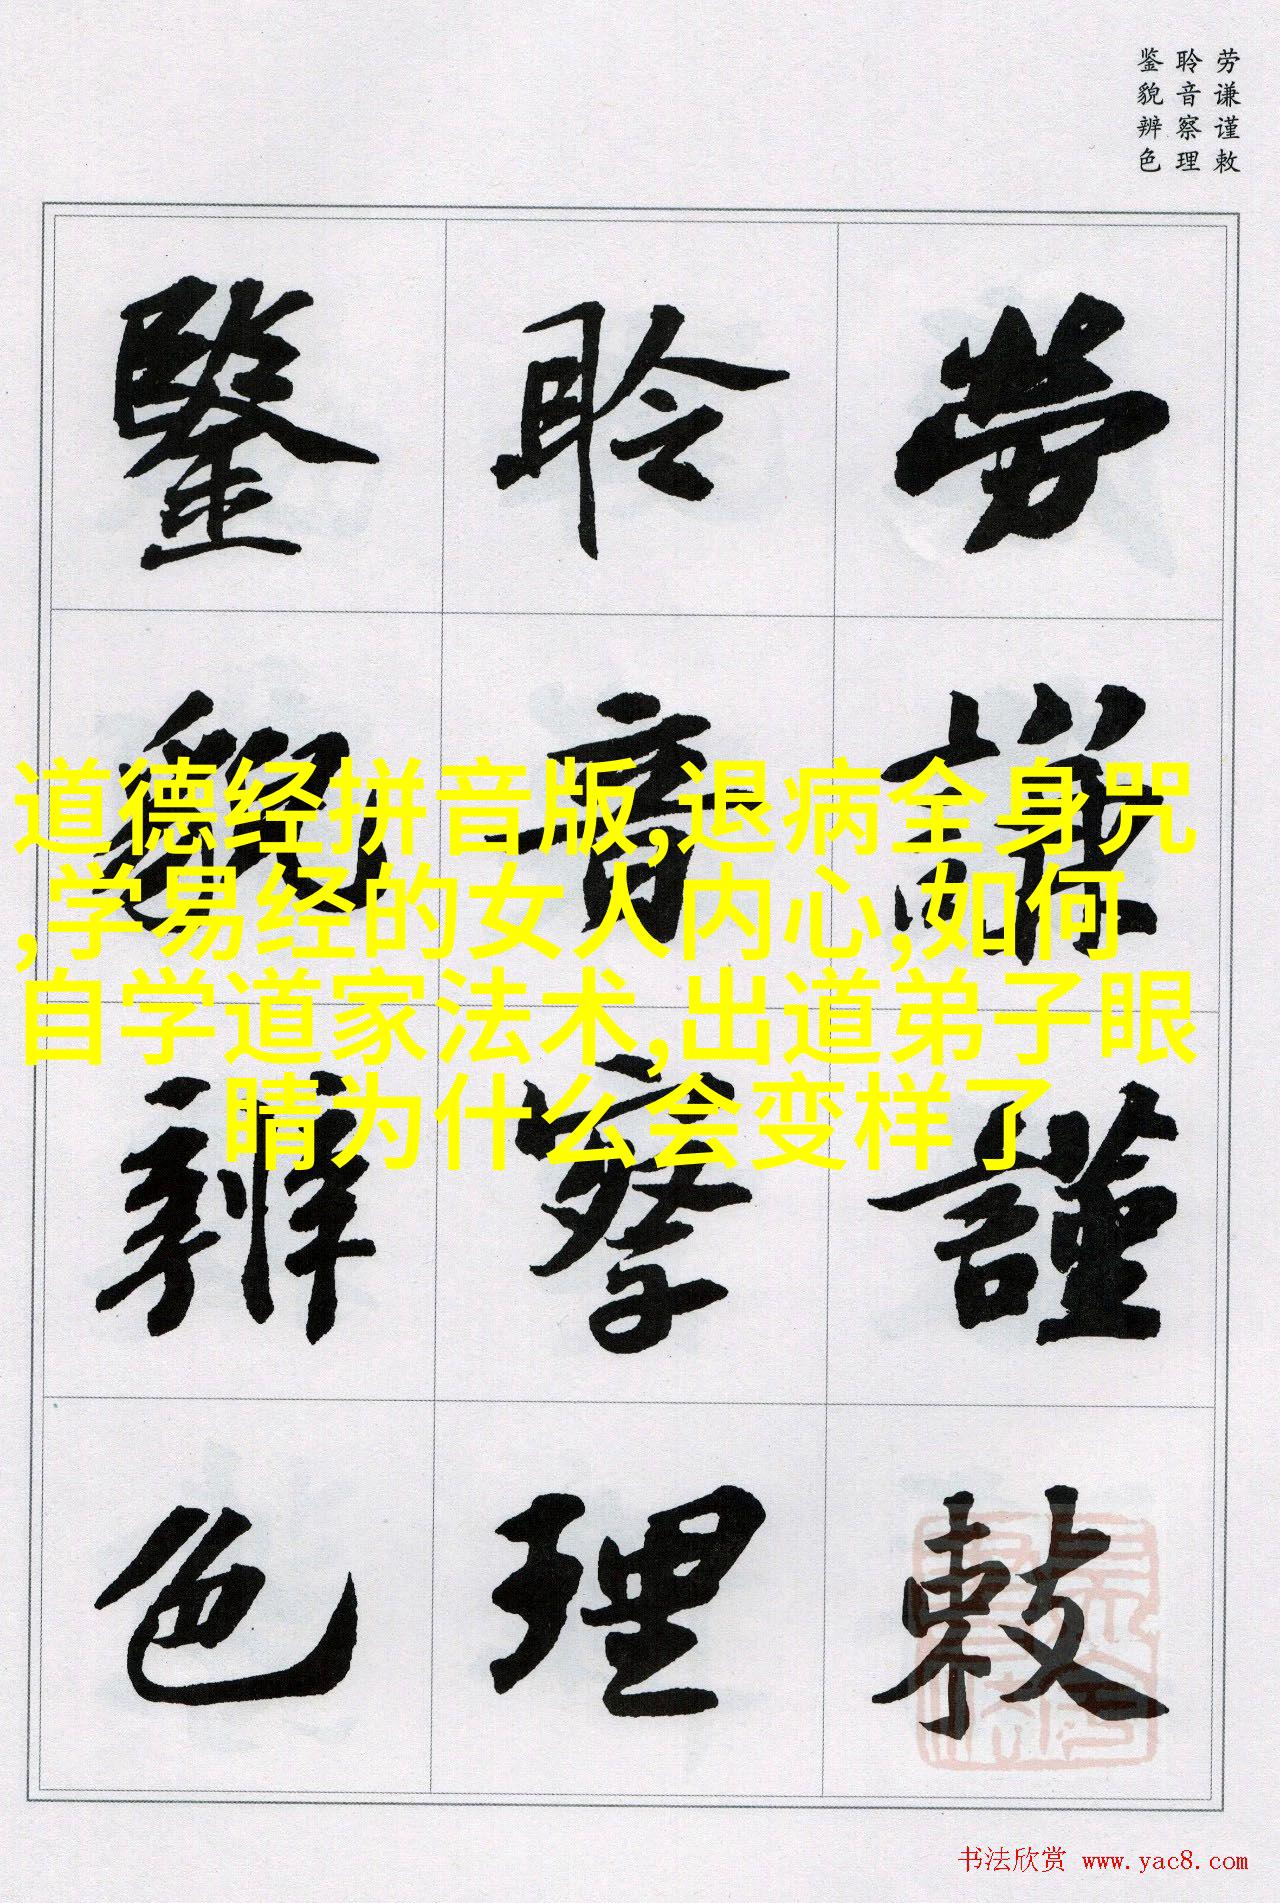 劳谦谨敕
聆音察理
鉴貌辨色
勞謙謹敕
聆音察理
鑒貌辨色
道德经拼音版,退病全身咒
,学易经的女人内心,如何
自学道家法术,出道弟子眼
睛为什么会变样了
书法欣赏 www.yac8.com